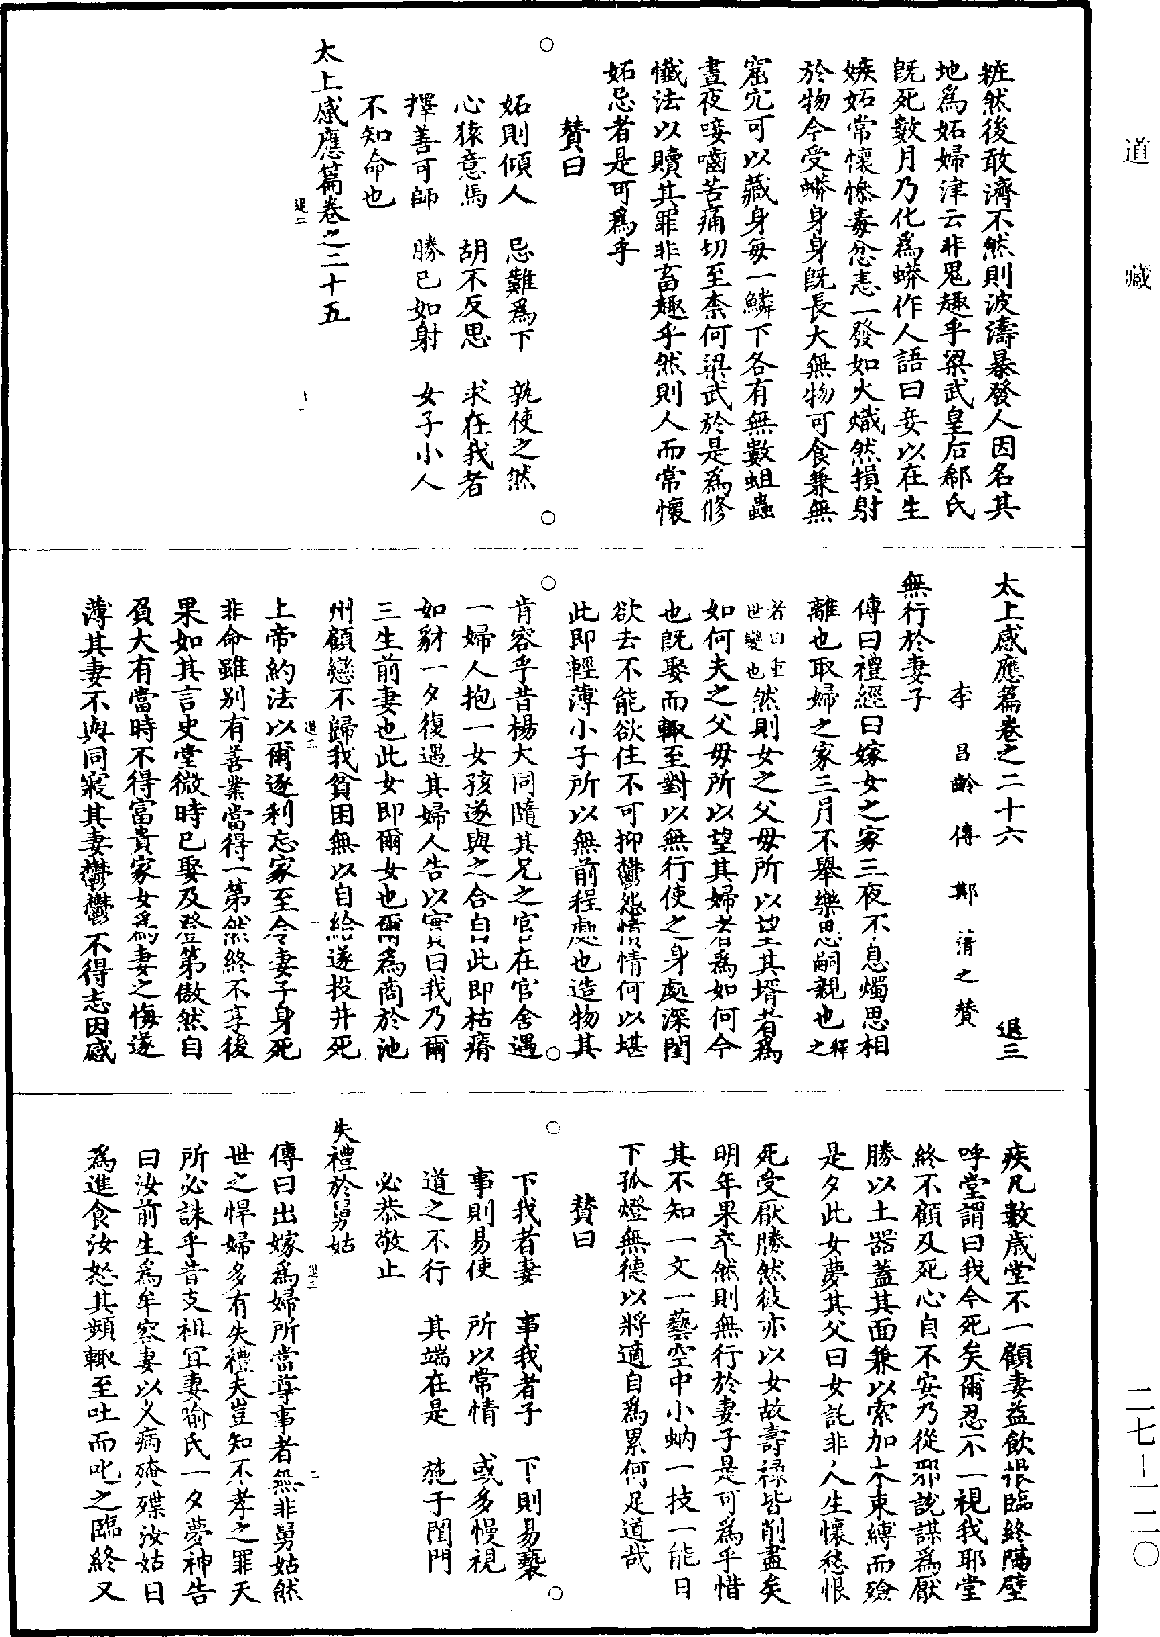 道藏
粧然後敢濟不然則波濤暴發人因名其
地爲妬婦津云非鬼趣乎梁武皇后郗氏
既死數月乃化爲蟒作人語曰妾以在生
嫉妬常懷慘毒忿恚一發如火熾然損射
於物今受蟒身身既長大無物可食兼無
窟穴可以藏身每一鱗下各有無數蛆蟲
晝夜唼嚙苦痛切至柰何梁武於是爲修
懺法以贖其罪非畜趣乎然則人而常懷
妬忌者是可爲乎
贊曰
妬則傾人 忌難爲下 孰使之然
心猿意馬 胡不反思 求在我者
擇善可師 勝已如射 女子小人
不知命也
太上感應篇卷之二十五
退二
太上感應篇卷之二十六 退三
李昌齡傳 鄭清之贊
無行於妻子
傳曰禮經曰嫁女之家三夜不息燭思相
離也取婦之家三月不舉樂思嗣親也釋之
者曰重世變也然則女之父母所以望其壻者爲
如何夫之父母所以望其婦者爲如何今
也既娶而輙至對以無行使之身處深閨
欲去不能欲住不可抑鬱怨情情何以堪
此即輕薄小子所以無前程處也造物其
肯容乎昔楊大同隨其兄之官在官舍遇
一婦人抱一女孩遂與之合自此即枯瘠
如豺一夕復遇其婦人告以實曰我乃爾
三生前妻也此女即爾女也爾爲商於池
州顧戀不歸我貧困無以自給遂投井死
退三
上帝約法以爾逐利忘家至令妻子身死
非命雖别有善業當得一第然終不享後
果如其言史堂微時已娶及登第傲然自
負大有當時不得富貴家女爲妻之悔遂
薄其妻不與同寢其妻鬱鬱不得志因感
疾凡數歲堂不一顧妻益飲恨臨終隔壁
呼堂謂曰我今死矣爾忍不一視我耶堂
終不顧及死心自不安乃從邪說謀爲厭
勝以土器蓋其面兼以索加木束縛而殮
是夕此女夢其父曰女託非人生懷愁恨
死受厭勝然彼亦以女故壽禄皆削盡矣
明年果卒然則無行於妻子是可爲乎惜
其不知一文一藝空中小蚋一技一能日
下孤燈無德以將適自爲累何足道哉
贊曰
下我者妻 事我者子 下則易褻
事則易使 所以常情 或多慢視
道之不行 其端在是 施于閨門
必恭敬止
失禮於舅姑
傳曰出嫁爲婦所當尊事者無非舅姑然
世之悍婦多有失禮夫豈知不孝之罪天
所必誅乎昔支祖冝妻喻氏一夕夢神告
曰汝前生爲牟容妻以久病殗殜汝姑日
爲進食汝怒其頻輙至吐而叱之臨終又
二七—一二〇